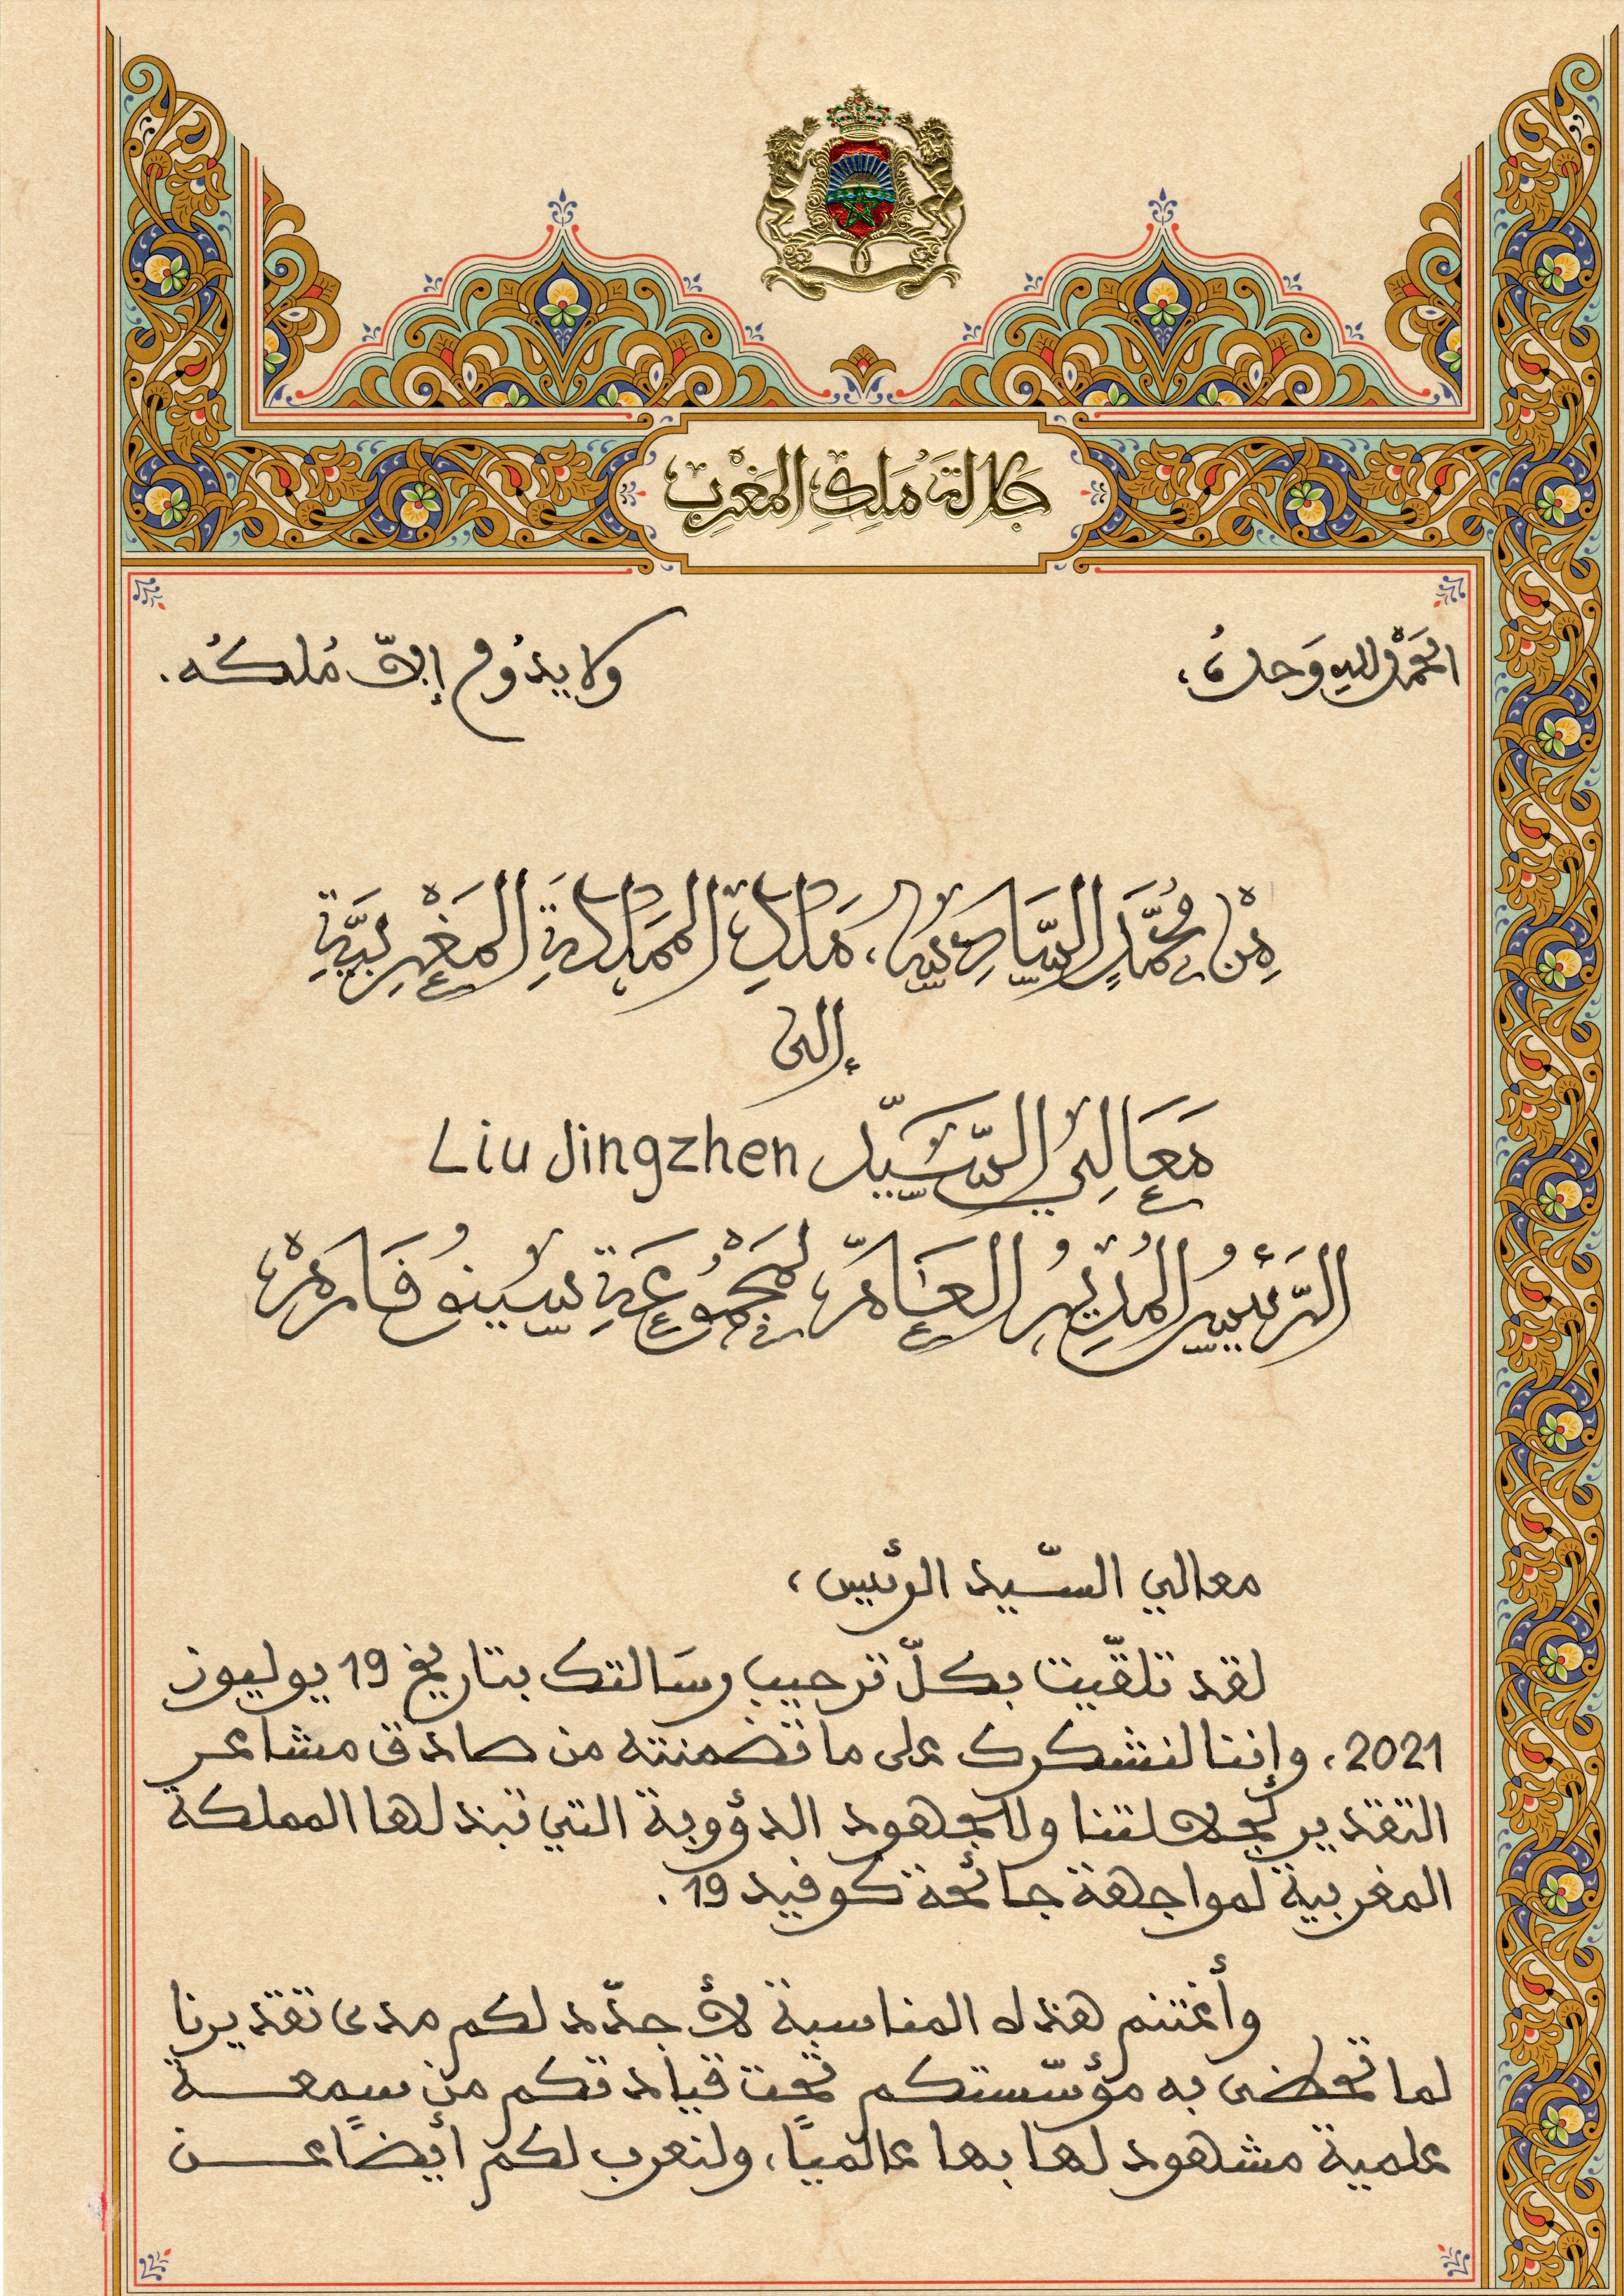 جلالة مَلِكِ المَغْرِب
الحَمْدُ للهِ وَحدهُ، ولا يدُوم إلاّ مُلكُه.
مِنْ مُحَمَّدٍ السَّادِسِ، مَلِكِ المَمْلَكَةِ المَغْرِبِيَّةِ
إلى
مَعَالِي السَّيِّد Liu Jingzhen
الرَّئِيسُ المُدِيرُ العَامُّ، لمَجْمُوعَةِ سِينُوفَارمْ،
معالي السّيد الرئيس،
لقد تلقّيت بكلّ ترحيب رسَالتك بتاريخ 19 يوليوز
2021، وإننا لنشكرك على ما تضمنته من صادق مشاعر
التقدير لجلالتنا وللجهود الدؤوبة التي تبذلها المملكة
المغربية لمواجهة جائحة كوفيد 19.
وأغتنم هذه المناسبة لأجدّد لكم مدى تقديرنا
لما تحظى به مؤسّستكم تحت قيادتكم من سمعة
علمية مشهود لها بها عالميًا، ولنعرب لكم أيضًا عن